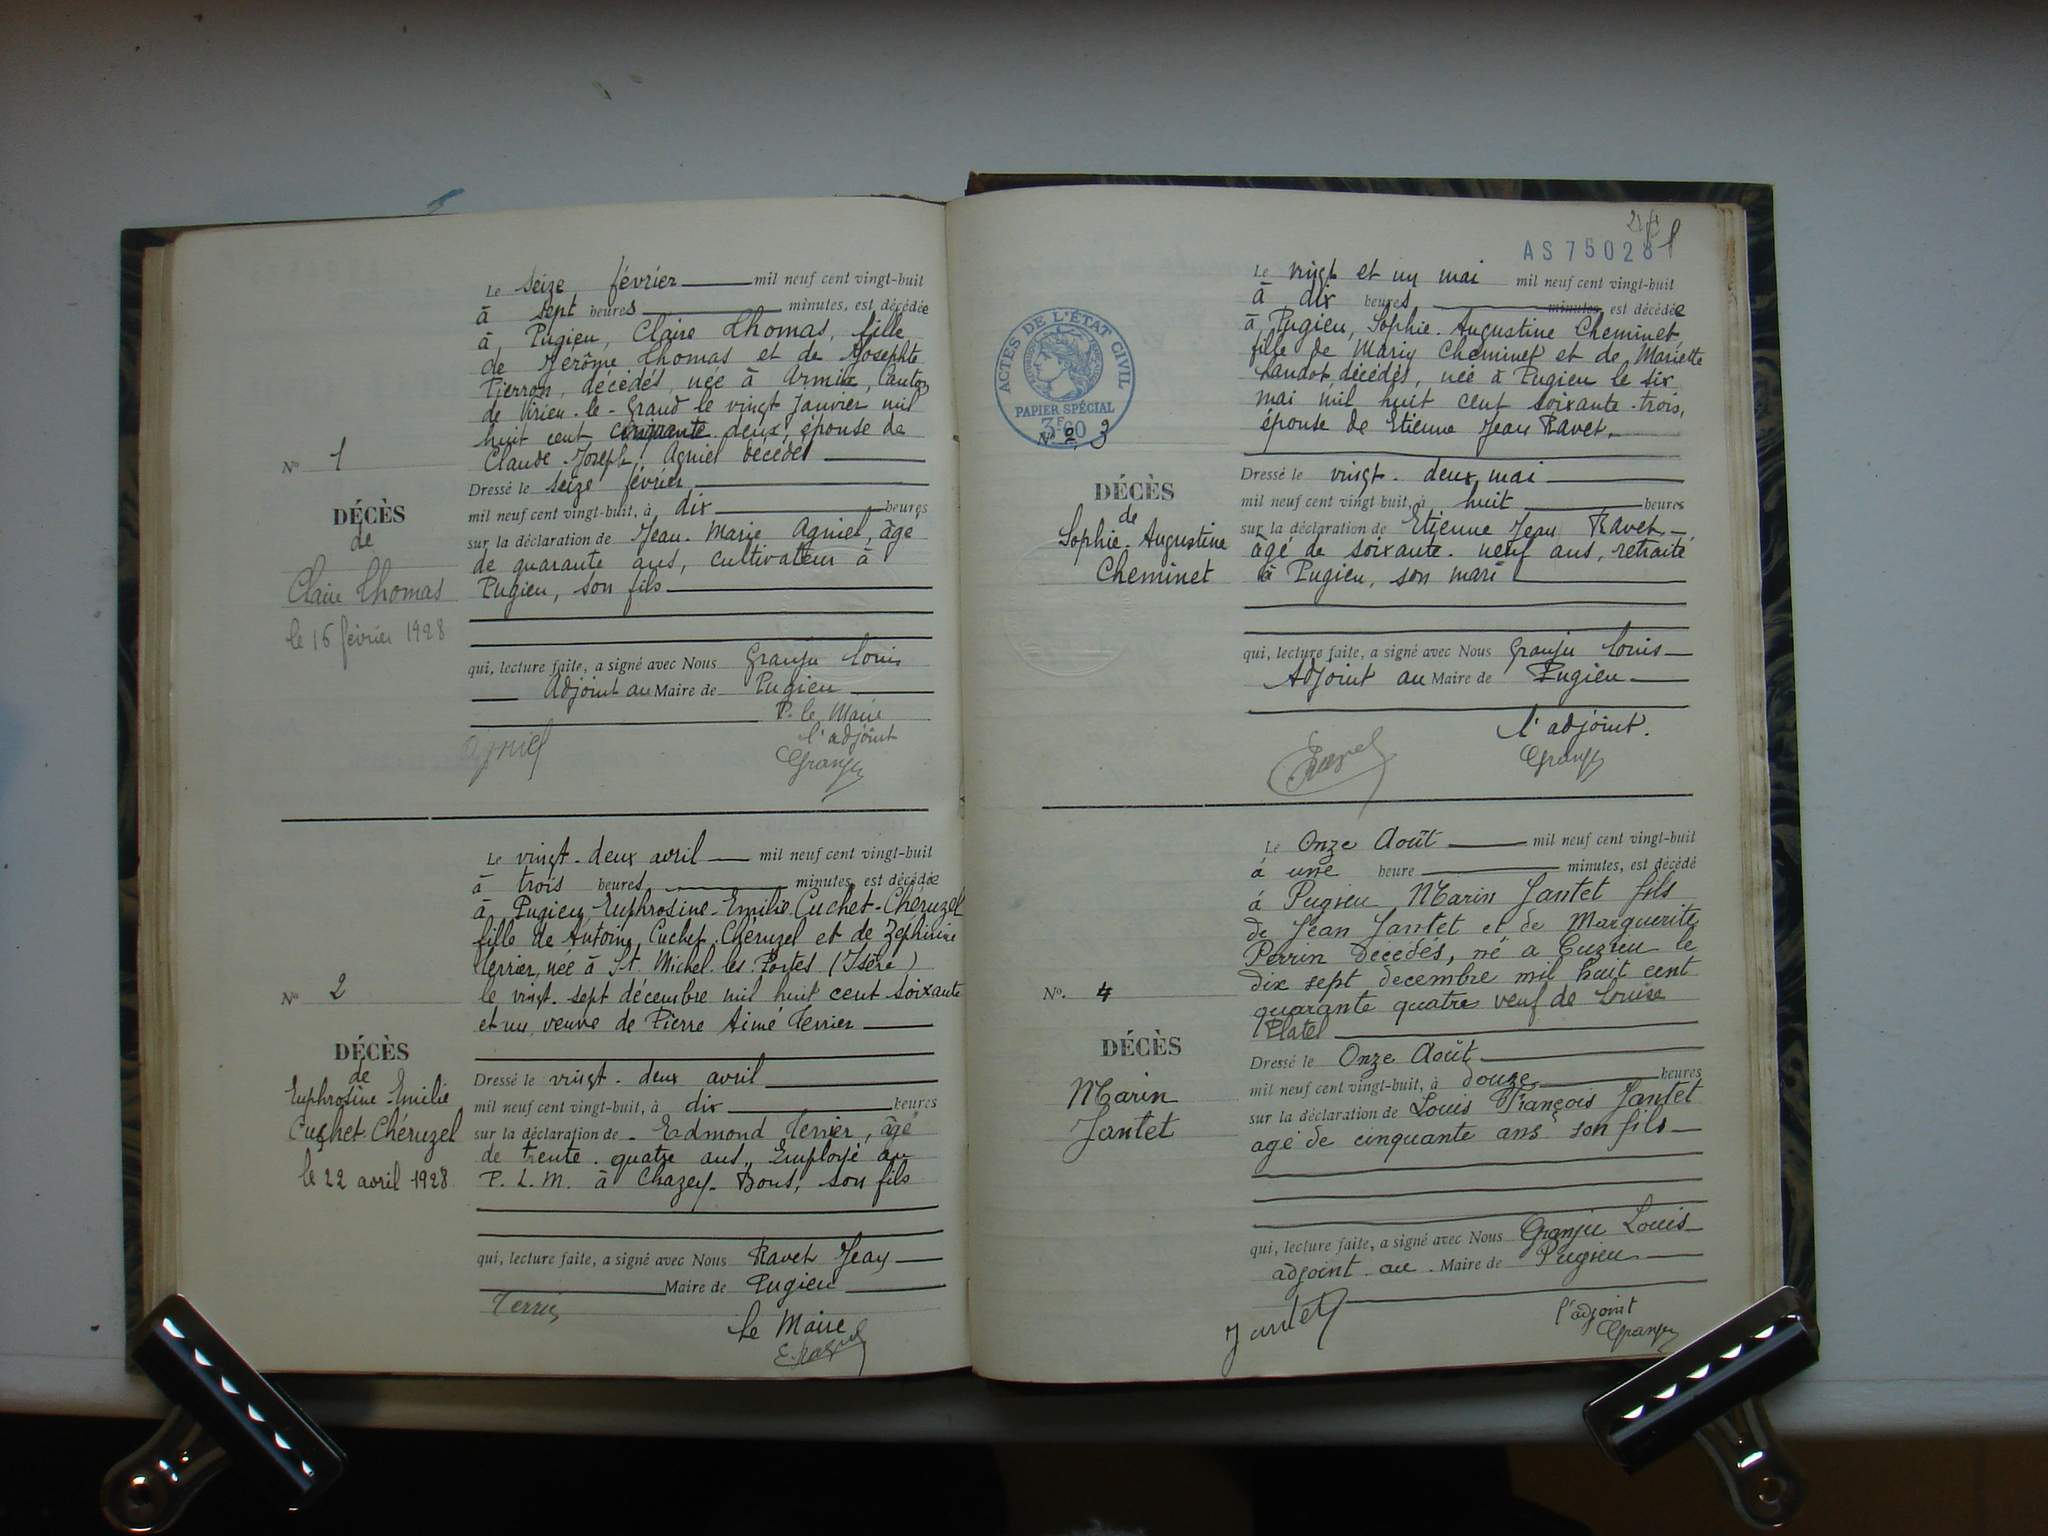 Le seize février mil neuf cent vingt-huit
à sept heures minutes, est décédée
à Pugieu, Claire Thomas, fille
de Jérôme Thomas et de Josephte
Pierron, décédés, née à Armix, Canton
de Virieu-le-Grand le vingt Janvier mil
huit cent cinquante deux, épouse de
Claude-Joseph Agniel décédé
Nº 1
DÉCÈS
de
Claire Thomas
le 16 février 1928
Dressé le seize février
mil neuf cent vingt-huit, à dix heures
sur la déclaration de Jean-Marie Agniel, âgé
de quarante ans, cultivateur à
Pugieu, son fils
qui, lecture faite, a signé avec Nous Granju Louis
Adjoint au Maire de Pugieu
P. le Maire
l'adjoint
Agniel Granju
Le vingt-deux avril mil neuf cent vingt-huit
à trois heures minutes, est décédée
à Pugieu, Euphrosine-Emilie Cuchet-Chéruzel
fille de Antoine Cuchet-Chéruzel et de Zéphirine
Terrier, née à St. Michel-les-Portes (Isère)
le vingt-sept décembre mil huit cent soixante
et un, veuve de Pierre Aimé Terrier
Nº 2
DÉCÈS
de
Euphrosine-Emilie
Cuchet-Chéruzel
le 22 avril 1928
Dressé le vingt-deux avril
mil neuf cent vingt-huit, à dix heures
sur la déclaration de Edmond Terrier, âgé
de trente-quatre ans, Employé au
P. L. M. à Chazey-Bons, son fils
qui, lecture faite, a signé avec Nous Ravet Jean
Maire de Pugieu
Terrier
Le Maire
AS 75028
Le vingt et un mai mil neuf cent vingt-huit
à dix heures minutes, est décédée
à Pugieu, Sophie-Augustine Cheminet,
fille de Marin Cheminet et de Mariette
décédés, née à Pugieu le six
mai mil huit cent soixante-trois,
épouse de Etienne Jean Ravet.
ACTES DE L'ÉTAT CIVIL
PAPIER SPÉCIAL
3F60
Nº 3
DÉCÈS
de
Sophie-Augustine
Cheminet
Dressé le vingt-deux mai
mil neuf cent vingt-huit, à huit heures
sur la déclaration de Etienne Jean Ravet,
âgé de soixante-neuf ans, retraité
à Pugieu, son mari
qui, lecture faite, a signé avec Nous Granju Louis
Adjoint au Maire de Pugieu
l'adjoint.
Ravet Granju
Le Onze Août mil neuf cent vingt-huit
à une heure minutes, est décédé
à Pugieu Marin Jantet fils
de Jean Jantet et de Marguerite
Perrin décédés, né a Cuzieu le
dix sept decembre mil huit cent
quarante quatre veuf de Louise
Platel
No. 4
DÉCÈS
Marin
Jantet
Dressé le Onze Août
mil neuf cent vingt-huit, à douze heures
sur la déclaration de Louis François Jantet
agé de cinquante ans son fils
qui, lecture faite, a signé avec Nous Granju Louis
adjoint au Maire de Pugieu
Jantet
l'adjoint
Granju